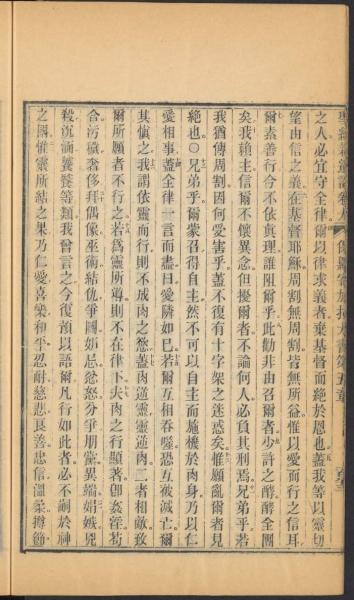 之人必宜守全律爾以律求義者棄基督而絶於恩也蓋我等以靈切
望由信之義在基督耶穌周割無周割皆無所益惟以愛而行之信耳
爾素善行今不依眞理誰阻爾乎此勸非由召爾者少許之酵酵全團
矣我賴主信爾不懷異念但擾爾者不論何人必負其刑焉兄弟乎若
我猶傳周割因何受害乎蓋不復有十字架之迷惑矣惟願亂爾者見
絶也○兄弟乎爾蒙召得自主然不可以自主而施機於肉身乃以仁
愛相事蓋全律一言而盡曰愛隣如己若爾互相吞噬恐互被滅亡爾
其愼之我謂依靈而行則不成肉之慾蓋肉逆靈靈逆肉二者相敵致
爾所願者不行之若爲靈所導則不在律下夫肉之行顯著卽姦淫苟
合污穢奢侈拜偶像巫術結仇爭鬬妒忌忿怒分爭朋黨異端娼嫉兇
殺沉湎饕餮等類我曾言之今復預以語爾凡行如此者必不嗣於神
之國惟靈所結之果乃仁愛喜樂和平忍耐慈悲良善忠信溫柔撙節